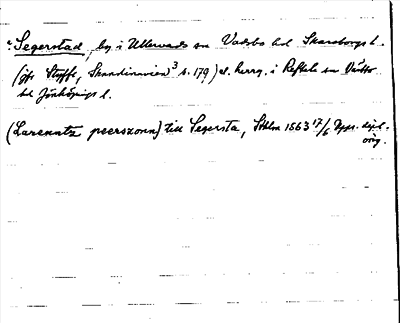 ? Segerstad, by i Ullervads sn Vadsbo hd Skaraborgs l.
(jfr Styffe, Skandinavien³ s. 179) el. herrg. i Reftele sn Västbo
hd Jönköpings l.
(Larenntz peerszonn) till Segersta, Sthlm 1563 17/6 Upps. dipl.
orig.